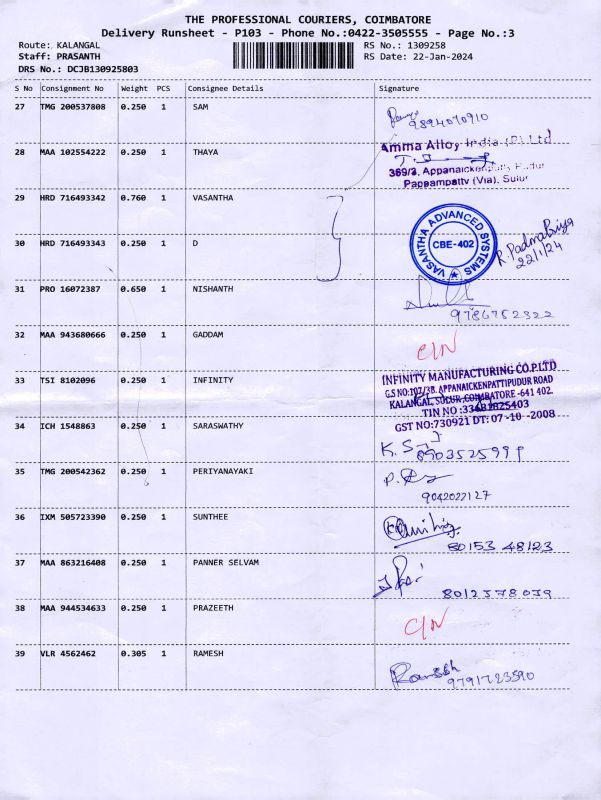 THE PROFESSIONAL COURIERS, COIMBATORE
Delivery Runsheet - P103 - Phone No.:0422-3505555 - Page No.:3
Route: KALANGAL RS No.: 1309258
Staff: PRASANTH RS Date: 22-Jan-2024
DRS No.: DCJB130925803
S No Consignment No Weight PCS Consignee Details Signature
27 TMG 200537808 0.250 1 SAM
9894070910
28 MAA 102554222 0.250 1 THAYA
Amma Alloy India (P) Ltd
369/2, Appanaickenpatti Pudur
Pappampatty (Via), Sulur
29 HRD 716493342 0.760 1 VASANTHA
VASANTHA ADVANCED SYSTEMS
CBE-402
R. PadmaPriya
22/1/24
30 HRD 716493343 0.250 1 D
31 PRO 16072387 0.650 1 NISHANTH
9786752322
32 MAA 943680666 0.250 1 GADDAM
C/N
33 TSI 8102096 0.250 1 INFINITY
INFINITY MANUFACTURING CO.P.LTD
G.S NO:107/3B, APPANAICKENPATTIPUDUR ROAD
KALANGAL, SULUR, COIMBATORE -641 402.
TIN NO :33481825403
GST NO:730921 DT: 07 -10 -2008
34 ICH 1548863 0.250 1 SARASWATHY
8903525999
35 TMG 200542362 0.250 1 PERIYANAYAKI
9042022127
36 IXM 505723390 0.250 1 SUNTHEE
80153 48123
37 MAA 863216408 0.250 1 PANNER SELVAM
8012378039
38 MAA 944534633 0.250 1 PRAZEETH
C/N
39 VLR 4562462 0.305 1 RAMESH
Ramesh
9791723590